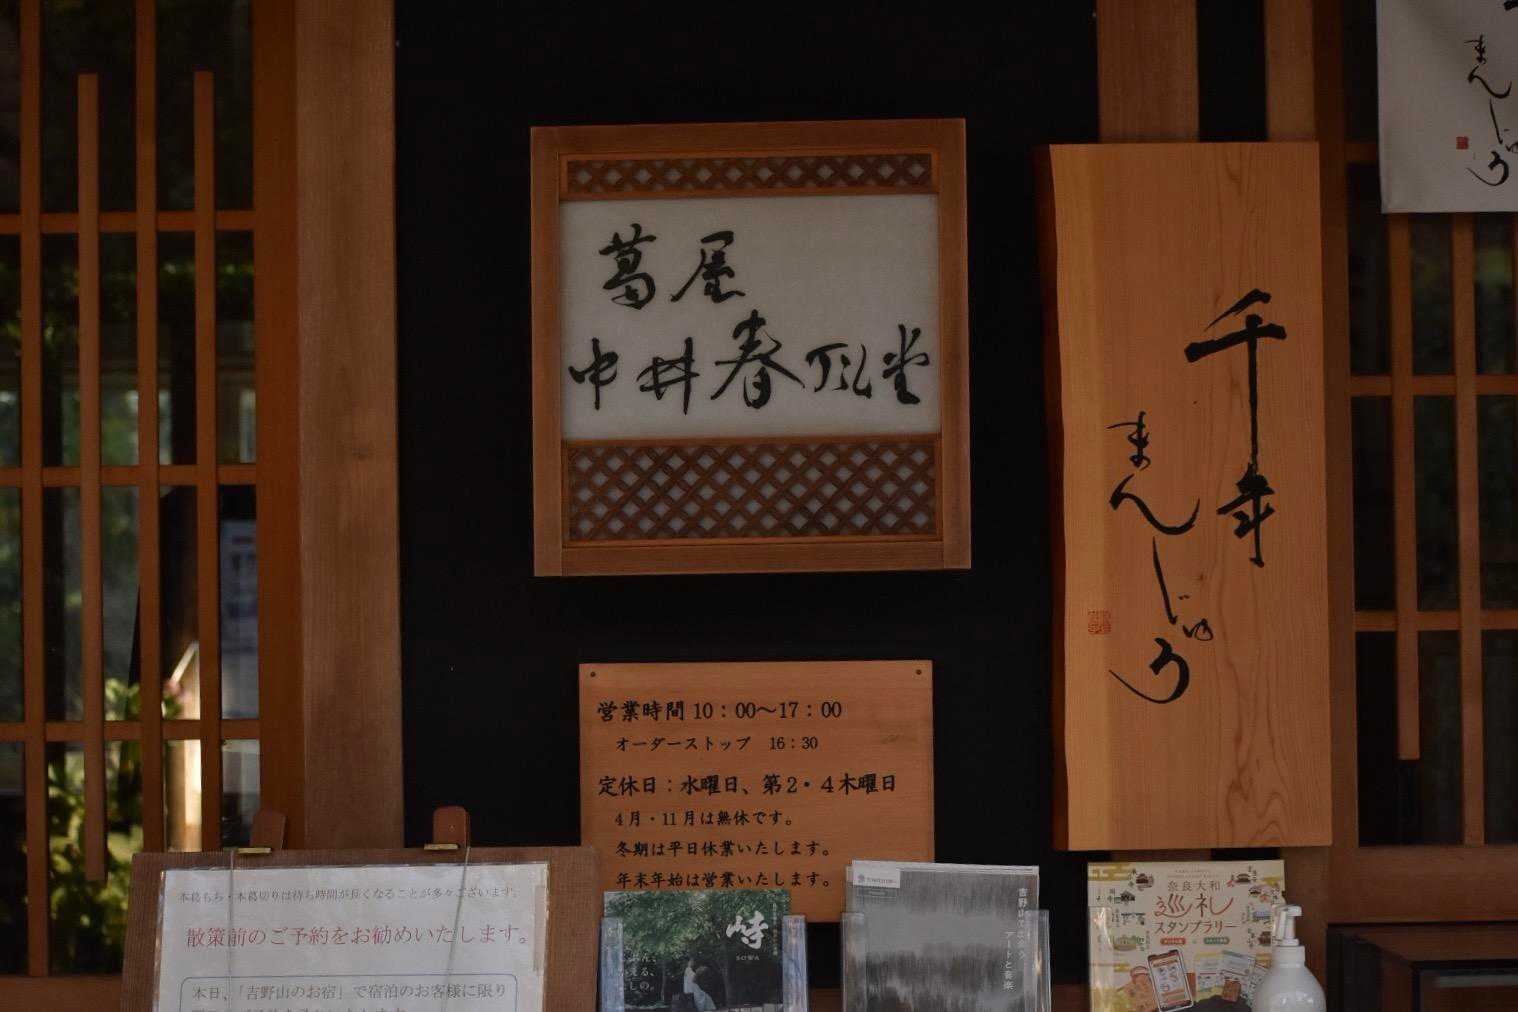 葛屋
中井春風堂
千年
まんじゅう
まんじゅう
営業時間 10：00〜17：00
オーダーストップ 16：30
定休日：水曜日、第2・4木曜日
4月・11月は無休です。
冬期は平日休業いたします。
年末年始は営業いたします。
本葛もち・本葛切りは待ち時間が長くなることが多々ございます。
散策前のご予約をお勧めいたします。
本日、「吉野山のお宿」で宿泊のお客様に限り
SOWA
アートと音楽
奈良大和
巡礼
スタンプラリー